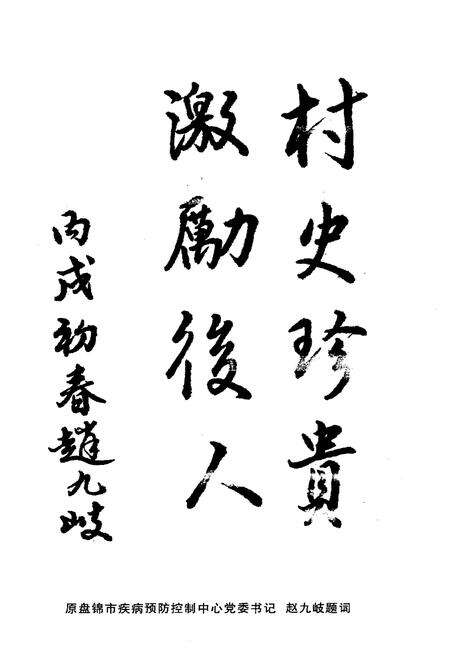 村史珍貴
激勵後人
丙戌初春趙九岐
原盘锦市疾病预防控制中心党委书记 赵九岐题词